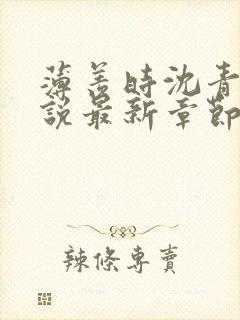 薄善時沈青
說最新章節
辣條專賣